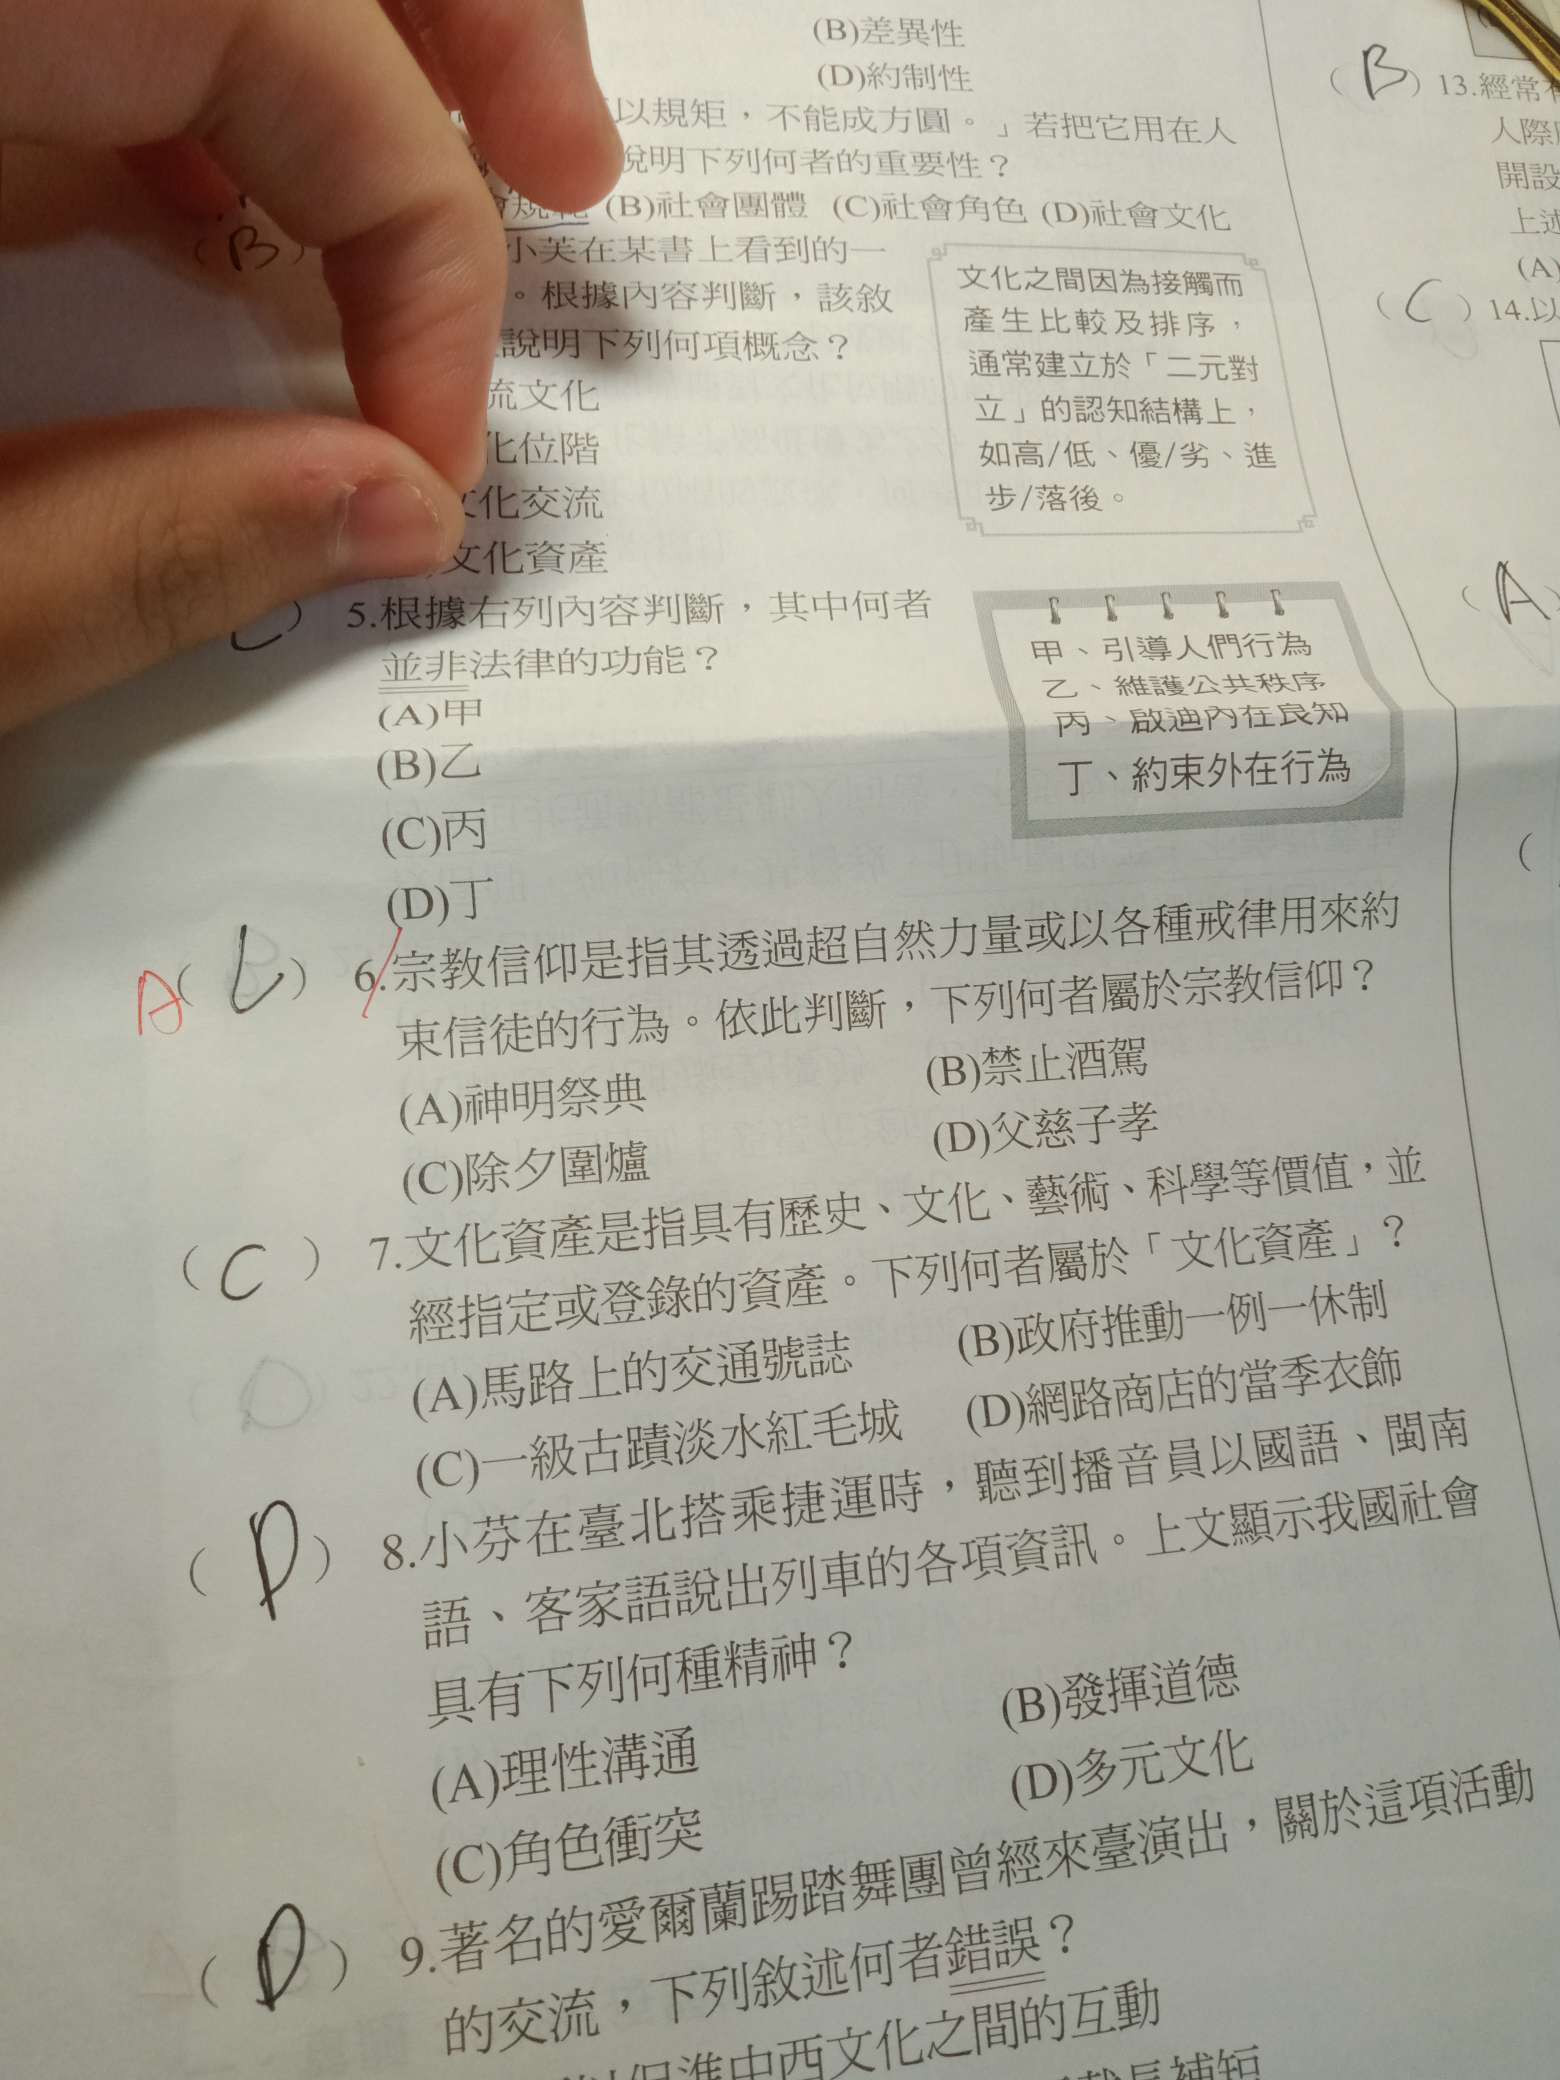 (B)差異性
(D)約制性
以規矩，不能成方圓。」若把它用在人
說明下列何者的重要性？
(B)社會團體 (C)社會角色 (D)社會文化
(B)
小芙在某書上看到的一
。根據內容判斷，該敘
說明下列何項概念？
流文化
化位階
文化交流
文化資產
文化之間因為接觸而
產生比較及排序，
通常建立於「二元對
立」的認知結構上，
如高/低、優/劣、進
步/落後。
) 5.根據右列內容判斷，其中何者
並非法律的功能？
(A)甲
(B)乙
(C)丙
(D)丁
甲、引導人們行為
乙、維護公共秩序
丙、啟迪內在良知
丁、約束外在行為
A( ) 6.宗教信仰是指其透過超自然力量或以各種戒律用來約
束信徒的行為。依此判斷，下列何者屬於宗教信仰？
(A)神明祭典 (B)禁止酒駕
(C)除夕圍爐 (D)父慈子孝
(C) 7.文化資產是指具有歷史、文化、藝術、科學等價值，並
經指定或登錄的資產。下列何者屬於「文化資產」？
(A)馬路上的交通號誌 (B)政府推動一例一休制
(C)一級古蹟淡水紅毛城 (D)網路商店的當季衣飾
(D) 8.小芬在臺北搭乘捷運時，聽到播音員以國語、閩南
語、客家語說出列車的各項資訊。上文顯示我國社會
具有下列何種精神？
(A)理性溝通 (B)發揮道德
(C)角色衝突 (D)多元文化
(D) 9.著名的愛爾蘭踢踏舞團曾經來臺演出，關於這項活動
的交流，下列敘述何者錯誤？
促進中西文化之間的互動
長補短
(B) 13.經常
人際
開設
上述
(A)
(C) 14.以
(A)